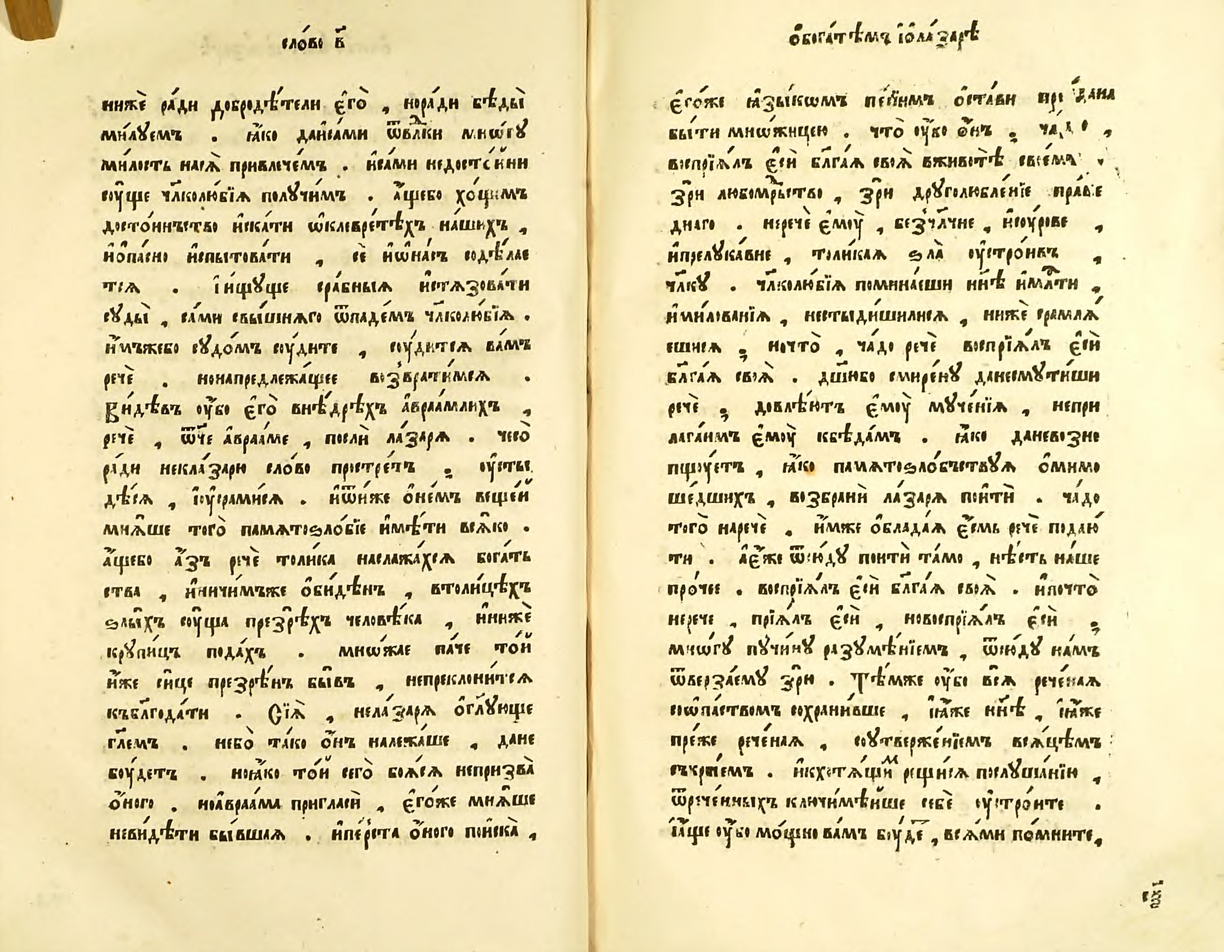 сло́во в҃
нижѐ ра́ди добродѣ́тели є҆го̀ , норади бѣды̀
милꙋемъ . ꙗ҆́ко да и҆са́ми ѿвл҃ки мнѡ́гꙋ
милость насѧ̀ привлече́мъ . и҆са́ми недосто́йни
сꙋ́ще чл҃колю́бїѧ полꙋчи́мъ . а҆́щебо хо́щемъ
досто́инъство и҆ска́ти ѡ҆клевре́тѣхъ на́шихъ ,
и҆ѻ҆па́сно и҆спытова́ти , сѐ и҆ѡ҆на́съ содѣ́лае
тсѧ . і҆и҆́щꙋще сра́бныѧ и҆стѧзова́ти
сꙋды̀ , са́ми свы́шнѧго ѿпаде́мъ чл҃колю́бїѧ .
и҆́мъжебо сꙋдо́мъ сꙋ́дите , сꙋ́дитсѧ ва́мъ
речѐ . нонапредлежа́щее возврати́мсѧ .
Ви́дѣвъ ᲂу҆́бо є҆го̀ внѣ́дрѣхъ а҆враа́млихъ ,
речѐ , ѿче а҆враа́ме , послѝ ла́зарѧ . чесо̀
ради неклазарю сло́во простре́тъ ; ᲂу҆сты
дѣ́сѧ , і҆ᲂу҆срами́сѧ . и҆ѿи́же ѻ҆не́мъ веще́й
мнѧ́ше того̀ памѧтоѕло́бїе и҆мѣ́ти всѧ́ко .
а҆́щебо а҆́зъ речѐ толи́ка наслажа́хсѧ бога́тъ
ства , и҆ничи́мъже ѻ҆би́дѣнъ , втоли́цѣхъ
ѕлы́хъ сꙋ́ща презрѣ́хъ человѣ́ка , и҆нижѐ
крꙋпи́цъ пода́хъ . мно́жае па́че то́й
и҆́же си́це презрѣ́нъ бы́въ , непреклони́тсѧ
къблгода́ти . Сїѧ̀ , нела́зарѧ ѻ҆гл҃ꙋюще
гл҃емъ . небо̀ та́ко ѻ҆́нъ належа́ше , да не
бꙋ́детъ . ноꙗ҆́ко то́й сего̀ боѧ́сѧ непризва̀
ѻ҆́ного . ноа҆враа́ма пригласѝ , є҆го́же мнѧ́ше
неви́дѣти бы́вшаѧ . и҆пе́рста ѻ҆́ного поиска̀ ,
ѻ҆бога́тѣмъ і҆ѻ҆ла́зарѣ
є҆го́же ꙗ҆зы́комъ пе́симъ ѻ҆ста́ви пре да́на
бы́ти мно́жицею . что̀ ᲂу҆́бо ѻ҆́нъ ; ча́до ,
воспрїѧ́лъ є҆сѝ бл҃га́ѧ своѧ̀ вживотѣ̀ свое́мъ .
зрѝ любомꙋ́дрьство , зрѝ дрꙋголюбле́нїе пра́ве
днаго . неречѐ є҆мꙋ̀ , безчл҃чне , и҆сꙋ́рове ,
и҆прелꙋка́вне , толи́каѧ ѕла̀ ᲂу҆стро́ивъ ,
чл҃кꙋ . чл҃колю́бїѧ помина́еши нн҃ѣ и҆млⷭ҇ти ,
и҆ми́лованїѧ , нестыди́шилисѧ , нижѐ срамлѧ́
ешисѧ ; но что̀ , ча́до речѐ воспрїѧ́лъ є҆сѝ
бл҃га́ѧ своѧ̀ . дш҃ибо смире́нꙋ данесмꙋти́ши
речѐ ; довлѣ́етъ є҆мꙋ̀ мꙋче́нїѧ , непри
лага́имъ є҆мꙋ̀ кбѣда́мъ . ꙗ҆́ко даневозне
пщꙋ́етъ , ꙗ҆́ко памѧтоѕло́бъствꙋѧ ѻ҆мимо
ше́дшихъ , возбранѝ ла́зарѧ поитѝ . ча́до
того̀ наречѐ . и҆́мже ѻ҆блада́ѧ є҆́смь речѐ подаю́
ти . а҆є҆́же ѿсю́дꙋ поитѝ та́мо , нѣ́сть на́ше
про́чее . воспрїѧ́лъ є҆сѝ бл҃га́ѧ своѧ̀ . и҆почто̀
нерече , прїѧ́лъ є҆сѝ , новоспрїѧ́лъ є҆сѝ ;
мно́гꙋ пꙋчи́нꙋ разꙋмѣ́нїемъ , ѿсю́дꙋ на́мъ
ѿверза́емꙋ зрѝ . Тѣ́мже ᲂу҆́бо всѧ̀ рече́наѧ
соѡ҆па́ствомъ сохрани́вше , ꙗ҆́же нн҃ѣ , ꙗ҆́же
пре́же рече́наѧ , сꙋтверже́нїемъ всѧ́цѣмъ
съкры́емъ . и҆кхотѧ́щимъ рещи́сѧ послꙋша́нїю ,
ѿрече́нныхъ ключи́мѣйше себѐ ᲂу҆стро́ите .
І҆а҆́ще ᲂу҆́бо мо́щно ва́мъ бꙋ́де , всѧ̀ми по́мните ,